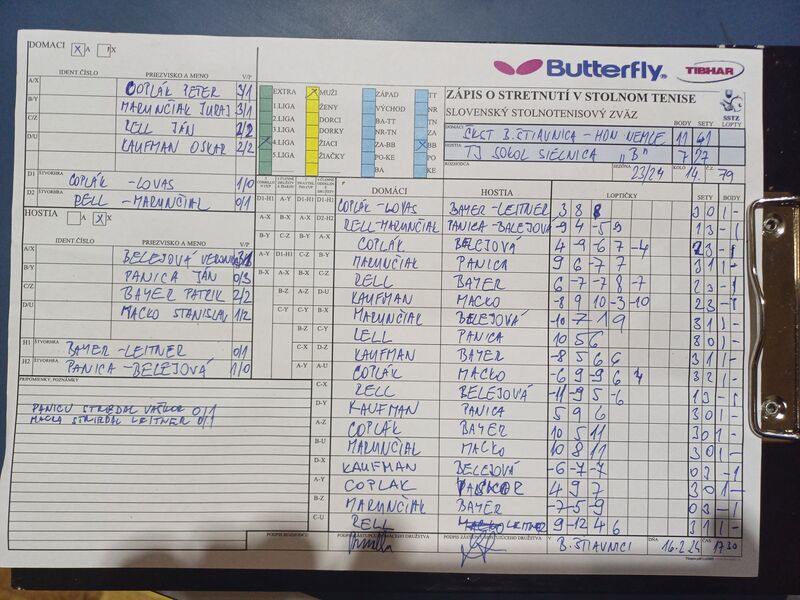 DOMACI X A X
Butterfly TIBHAR
IDENT.ČÍSLO PRIEZVISKO A MENO V/P
A/X COPLÁK PETER 3/1
B/Y MARUNČIAK JURAJ 3/1
C/Z RELL JÁN 2/2
D/U KAUFMAN OSKAR 2/2
D1 ŠTVORHRA COPLÁK -LOVAS 1/0
D2 RELL - MARUNČIAL 0/1
EXTRA
1.LIGA
2.LIGA
3.LIGA
4.LIGA
5.LIGA
MUŽI
ŽENY
DORCI
DORKY
ŽIACI
ŽIAČKY
ZÁPAD
VÝCHOD
BA-TT
NR-TN
ZA-BB
PO-KE
BA
TT
NR
TN
ZA
BB
PO
KE
ZÁPIS O STRETNUTÍ V STOLNOM TENISE
SLOVENSKÝ STOLNOTENISOVÝ ZVÄZ
SSTZ
BODY SETY LOPTY
DOMÁCI ČKST B.ŠTIAVNICA - HON NEMCE 11 41
HOSTIA TJ SOKOL SIELNICA "B" 7 27
ROZHODCA SEZÓNA 23/24 KOLO 14. Č.Z. 79
HOSTIA A X X
IDENT.ČÍSLO PRIEZVISKO A MENO V/P
A/X BELEJOVÁ
B/Y PANICA JÁN 0/3
C/Z BAYER PATRIK 2/2
D/U MACKO STANISLAV 1/2
H1 ŠTVORHRA BAYER -LEITNER 0/1
H2 ŠTVORHRA PANICA -BELEJOVÁ 1/0
PRIPOMIENKY, POZNÁMKY
PANICU STRIEDAL VAŇKOR 0/1
MACKA STRIEDAL LEITNER 0/1
DOMÁCI HOSTIA LOPTIČKY SETY BODY
COPLÁK -LOVAS BAYER -LEITNER 3 8 8 3 0 1 -
RELL-MARUNČIAK PANICA -BALEJOVÁ 9 4 -5 9 1 3 - 1
COPLÁK BELEJOVÁ 4 -9 -6 7 -4 2 3 - 1
MARUNČIAK PANICA 9 6 -7 7 3 1 1 -
RELL BAYER 6 -7 -7 8 -7 2 3 - 1
KAUFMAN MACKO -8 9 10 -3 -10 2 3 - 1
MARUNČIAK BELEJOVÁ -10 7 1 9 3 1 1 -
RELL PANICA 10 5 6 3 0 1 -
KAUFMAN BAYER -8 5 6 6 3 1 1 -
COPLÁK MACKO -6 9 -9 6 4 3 2 1 -
RELL BELEJOVÁ -11 9 -5 -6 1 3 - 1
KAUFMAN PANICA 5 9 6 3 0 1 -
COPLÁK BAYER 10 5 11 3 0 1 -
MARUNČIAL MACKO 10 8 11 3 0 1 -
KAUFMAN BELEJOVÁ -6 -7 -7 0 3 - 1
COPLAK 4 9 7 3 0 1 -
MARUNČIAK BAYER -7 -5 -9 0 3 - 1
RELL LEITNER 9 -12 4 6 3 1 1 -
PODPIS ROZHODCU PODPIS ZÁSTUPCU DOMÁCEHO DRUŽSTVA PODPIS ZÁSTUPCU HOSŤUJÚCEHO DRUŽSTVA V B.ŠTIAVNICI DŇA 16.2.24 ČAS 17 30